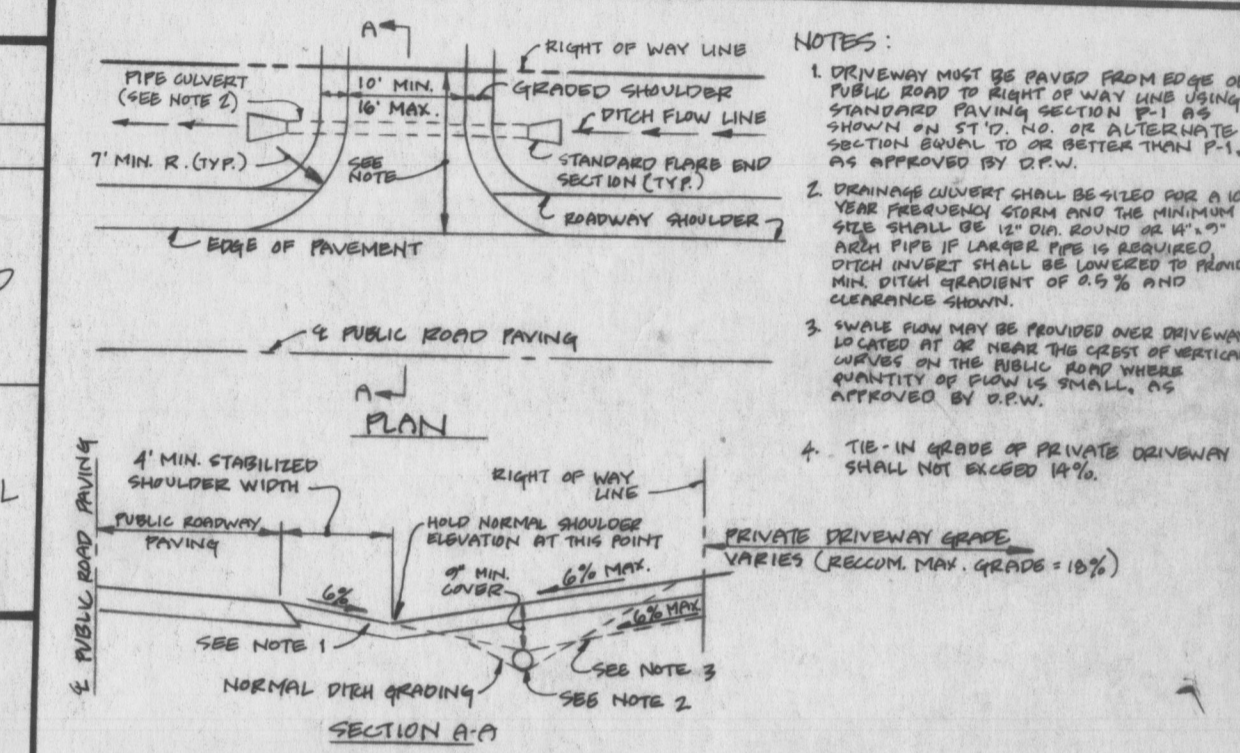 A
RIGHT OF WAY LINE
PIPE CULVERT
(SEE NOTE 2)
10' MIN.
16' MAX.
GRADED SHOULDER
DITCH FLOW LINE
7' MIN. R. (TYP.)
SEE
NOTE
STANDARD FLARE END
SECTION (TYP.)
ROADWAY SHOULDER
EDGE OF PAVEMENT
℄ PUBLIC ROAD PAVING
A
PLAN
NOTES:
1. DRIVEWAY MUST BE PAVED FROM EDGE OF
PUBLIC ROAD TO RIGHT OF WAY LINE USING
STANDARD PAVING SECTION P-1 AS
SHOWN ON ST'D. NO. OR ALTERNATE
SECTION EQUAL TO OR BETTER THAN P-1,
AS APPROVED BY D.P.W.
2. DRAINAGE CULVERT SHALL BE SIZED FOR A 10
YEAR FREQUENCY STORM AND THE MINIMUM
SIZE SHALL BE 12" DIA. ROUND OR 14"x9"
ARCH PIPE IF LARGER PIPE IS REQUIRED,
DITCH INVERT SHALL BE LOWERED TO PROVID
MIN. DITCH GRADIENT OF 0.5% AND
CLEARANCE SHOWN.
3. SWALE FLOW MAY BE PROVIDED OVER DRIVEWAY
LOCATED AT OR NEAR THE CREST OF VERTICAL
CURVES ON THE PUBLIC ROAD WHERE
QUANTITY OF FLOW IS SMALL, AS
APPROVED BY D.P.W.
4. TIE-IN GRADE OF PRIVATE DRIVEWAY
SHALL NOT EXCEED 14%.
L
℄ PUBLIC ROAD PAVING
4' MIN. STABILIZED
SHOULDER WIDTH
PUBLIC ROADWAY
PAVING
RIGHT OF WAY
LINE
HOLD NORMAL SHOULDER
ELEVATION AT THIS POINT
PRIVATE DRIVEWAY GRADE
VARIES (RECCUM. MAX. GRADE = 18%)
6%
9" MIN.
COVER
6% MAX.
6% MAX.
SEE NOTE 1
SEE NOTE 3
NORMAL DITCH GRADING
SEE NOTE 2
SECTION A-A